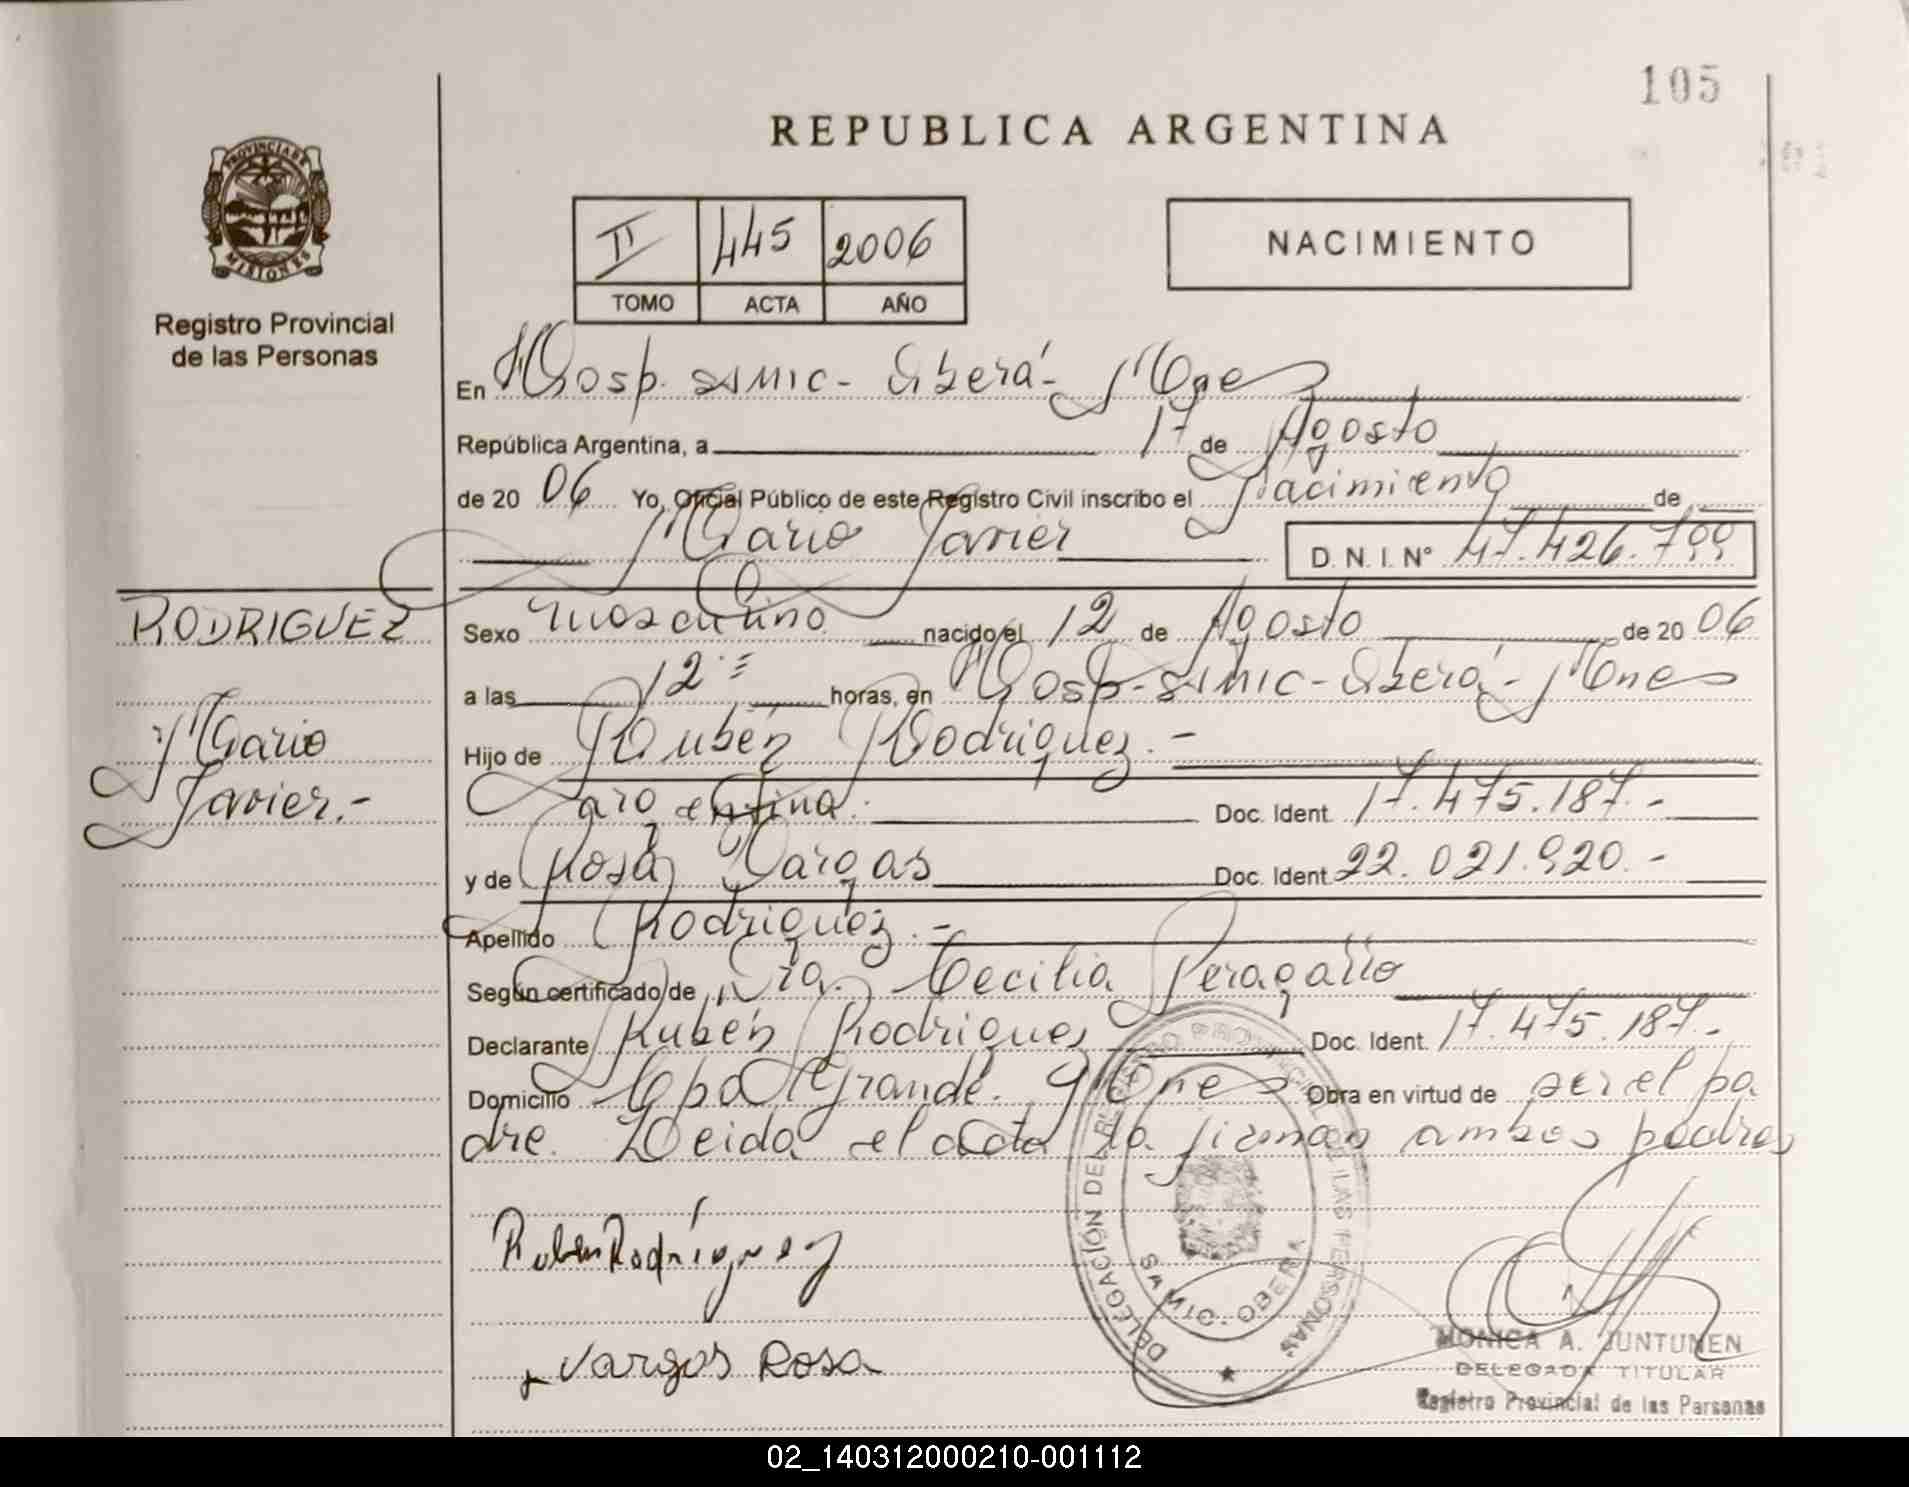 105
REPUBLICA ARGENTINA
PROVINCIA DE
MISIONES
Registro Provincial
de las Personas
II 445 2006
TOMO ACTA AÑO
NACIMIENTO
En Hosp. SAMIC - Oberá - Mnes
República Argentina, a 17 de Agosto
de 20 06 Yo, Oficial Público de este Registro Civil inscribo el Nacimiento de
Mario Javier D. N. I. Nº 47.426.799
RODRIGUEZ
Mario
Javier.-
Sexo masculino nacido el 12 de Agosto de 20 06
a las 12 horas, en Hosp-SAMIC-Oberá-Mnes
Hijo de Rubén Rodriguez.-
Argentina. Doc. Ident. 17.475.187.-
y de Rosa Vargas Doc. Ident. 22.021.920.-
Apellido Rodriguez.-
Según certificado de Dra. Cecilia Peragallo
Declarante Rubén Rodriguez Doc. Ident. 17.475.187.-
Domicilio Cpo Grande. Mnes Obra en virtud de ser el pa
dre. Leida el acta la firman ambos padres
Ruben Rodríguez
Vargas Rosa
DELEGACIÓN DEL REGISTRO PROVINCIAL DE LAS PERSONAS
SAMIC - OBERA
MONICA A. JUNTUNEN
DELEGADA TITULAR
Registro Provincial de las Personas
02_140312000210-001112